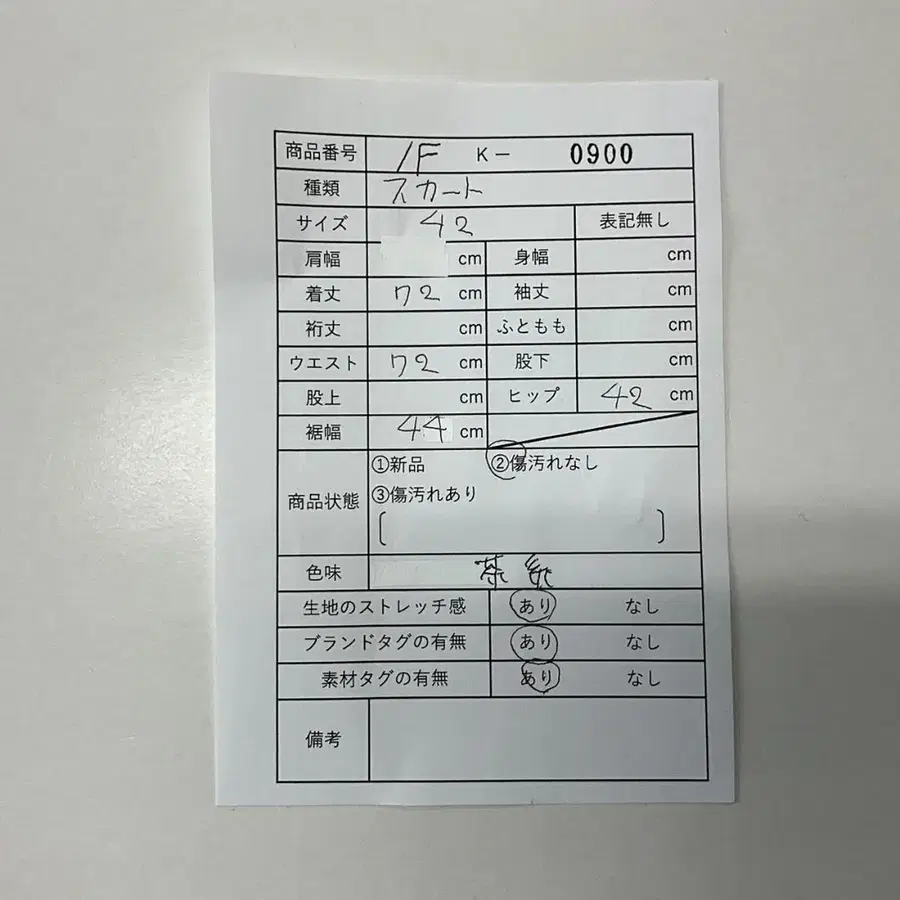 商品番号 1F K- 0900
種類 スカート
サイズ 42 表記無し
肩幅 cm 身幅 cm
着丈 72 cm 袖丈 cm
裄丈 cm ふともも cm
ウエスト 72 cm 股下 cm
股上 cm ヒップ 42 cm
裾幅 44 cm
商品状態 ①新品 ②傷汚れなし
③傷汚れあり
[ ]
色味 茶
生地のストレッチ感 あり なし
ブランドタグの有無 あり なし
素材タグの有無 あり なし
備考